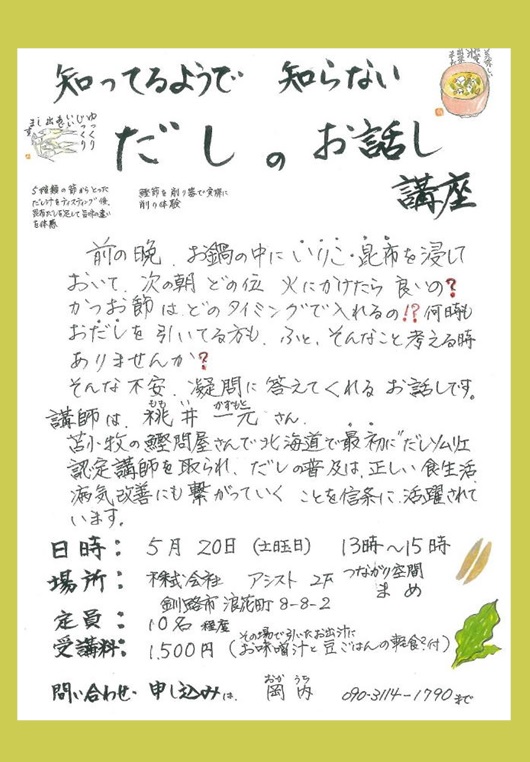 知ってるようで 知らない
だしのお話し
講座
ゆっくり
じっくり
いい
出しを
5種類の節からとった
だしけをテイスティング後、
昆布だしを足して旨味の違い
を体感
鰹節を削り器で実際に
削り体験
前の晩、お鍋の中に いりこ・昆布を浸して
おいて、次の朝 どの位 火にかけたら 良いの?
かつお節は どのタイミングで入れるの!? 何時も
おだしを 引いてる方も、ふと、そんなこと考える時
ありませんか?
そんな不安、凝問に 答えてくれる お話しです。
講師は、桃井 一元 さん。
ももい かずもと
苫小牧の鰹問屋さんで北海道で最初に"だしソムリエ
認定講師を取られ、だしの普及は、正しい食生活
病気改善にも繋がっていく ことを信条に、活躍されて
います。
日時: 5月20日(土曜日) 13時～15時
場所: 株式会社 アシスト 2F つながり空間 まめ
釧路市 浪花町 8-8-2
定員: 10名 程度
受講料: 1.500円 (その場で引いたお出汁に お味噌汁と豆ごはんの軽食付)
問い合わせ・申し込みは、 岡内 090-3114-1790まで
おか うち